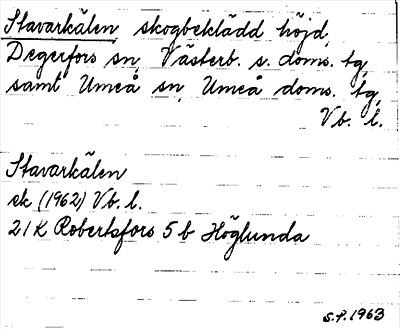 Stavarkälen skogbeklädd höjd,
Degerfors sn, Västerb. s. doms. tg,
samt Umeå sn, Umeå doms. tg,
Vb. l.
Stavarkälen
ek (1962) Vb. l.
21K Robertsfors 5 b Höglunda
S.P. 1963